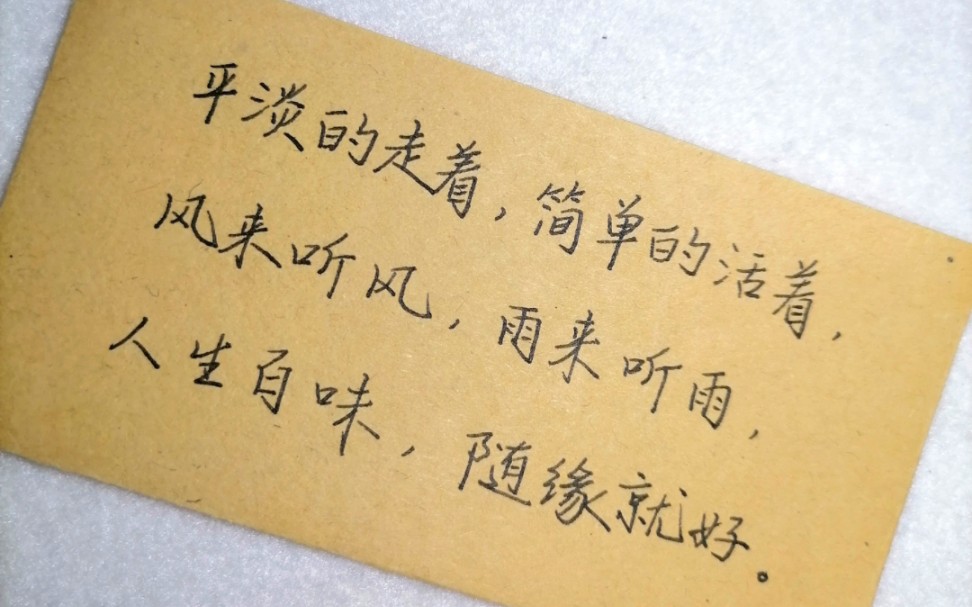 平淡的走着，简单的活着，
风来听风，雨来听雨，
人生百味，随缘就好。